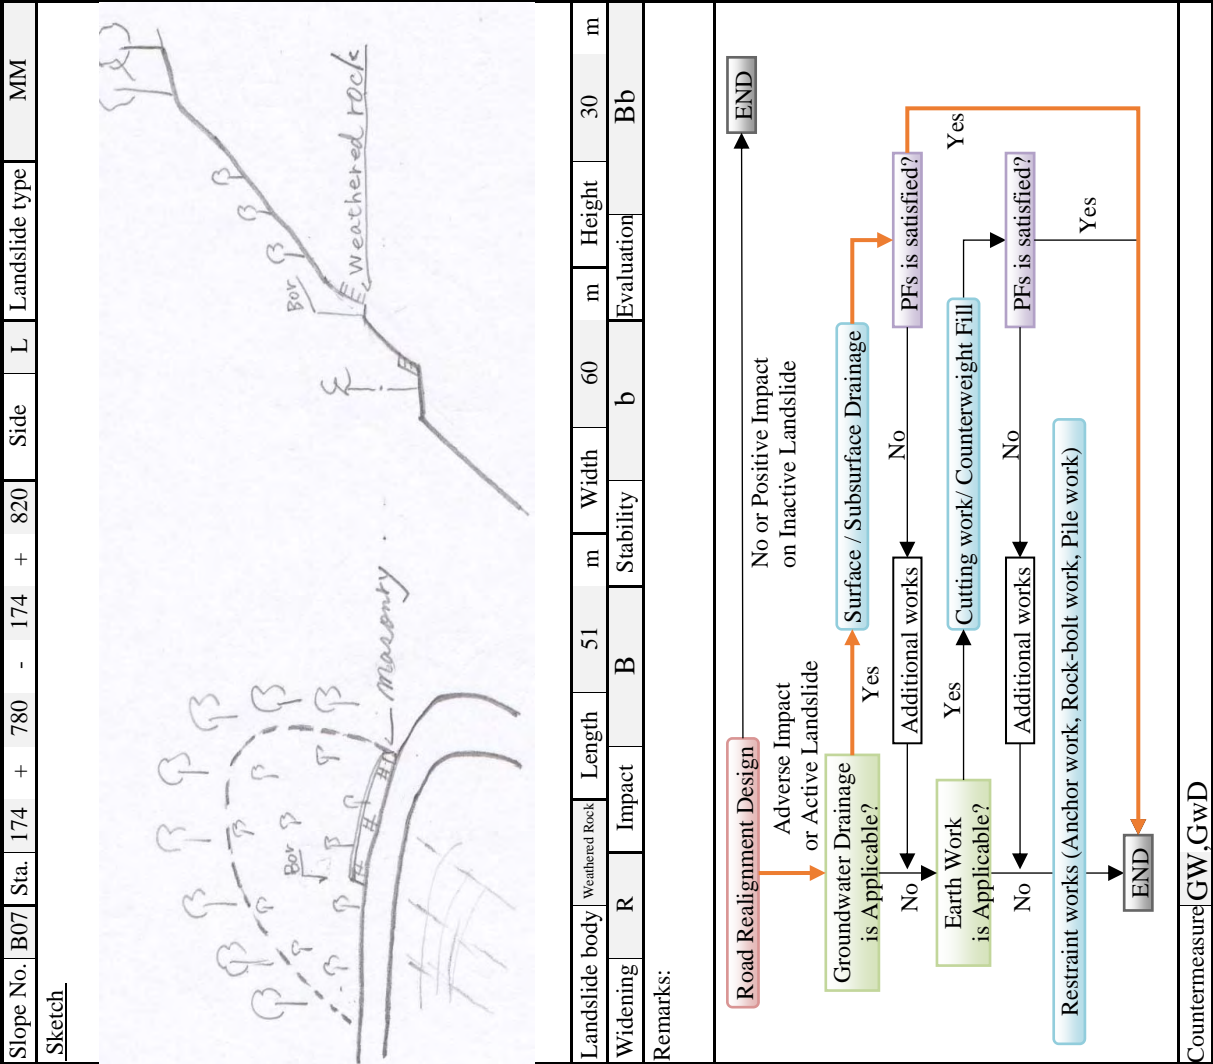 Slope No. B07 Sta. 174 + 780 - 174 + 820 Side L Landslide type MM
Sketch
Bor
Masonry.
Bor
Weathered rock
Landslide body Weathered Rock Length 51 m Width 60 m Height 30 m
Widening R Impact B Stability b Evaluation Bb
Remarks:
Road Realignment Design
No or Positive Impact
on Inactive Landslide
END
Adverse Impact
or Active Landslide
Groundwater Drainage
is Applicable?
Yes
Surface / Subsurface Drainage
PFs is satisfied?
Yes
No
Additional works
No
Earth Work
is Applicable?
Yes
Cutting work/ Counterweight Fill
PFs is satisfied?
Yes
No
Additional works
No
Restraint works (Anchor work, Rock-bolt work, Pile work)
END
Countermeasure GW,GwD